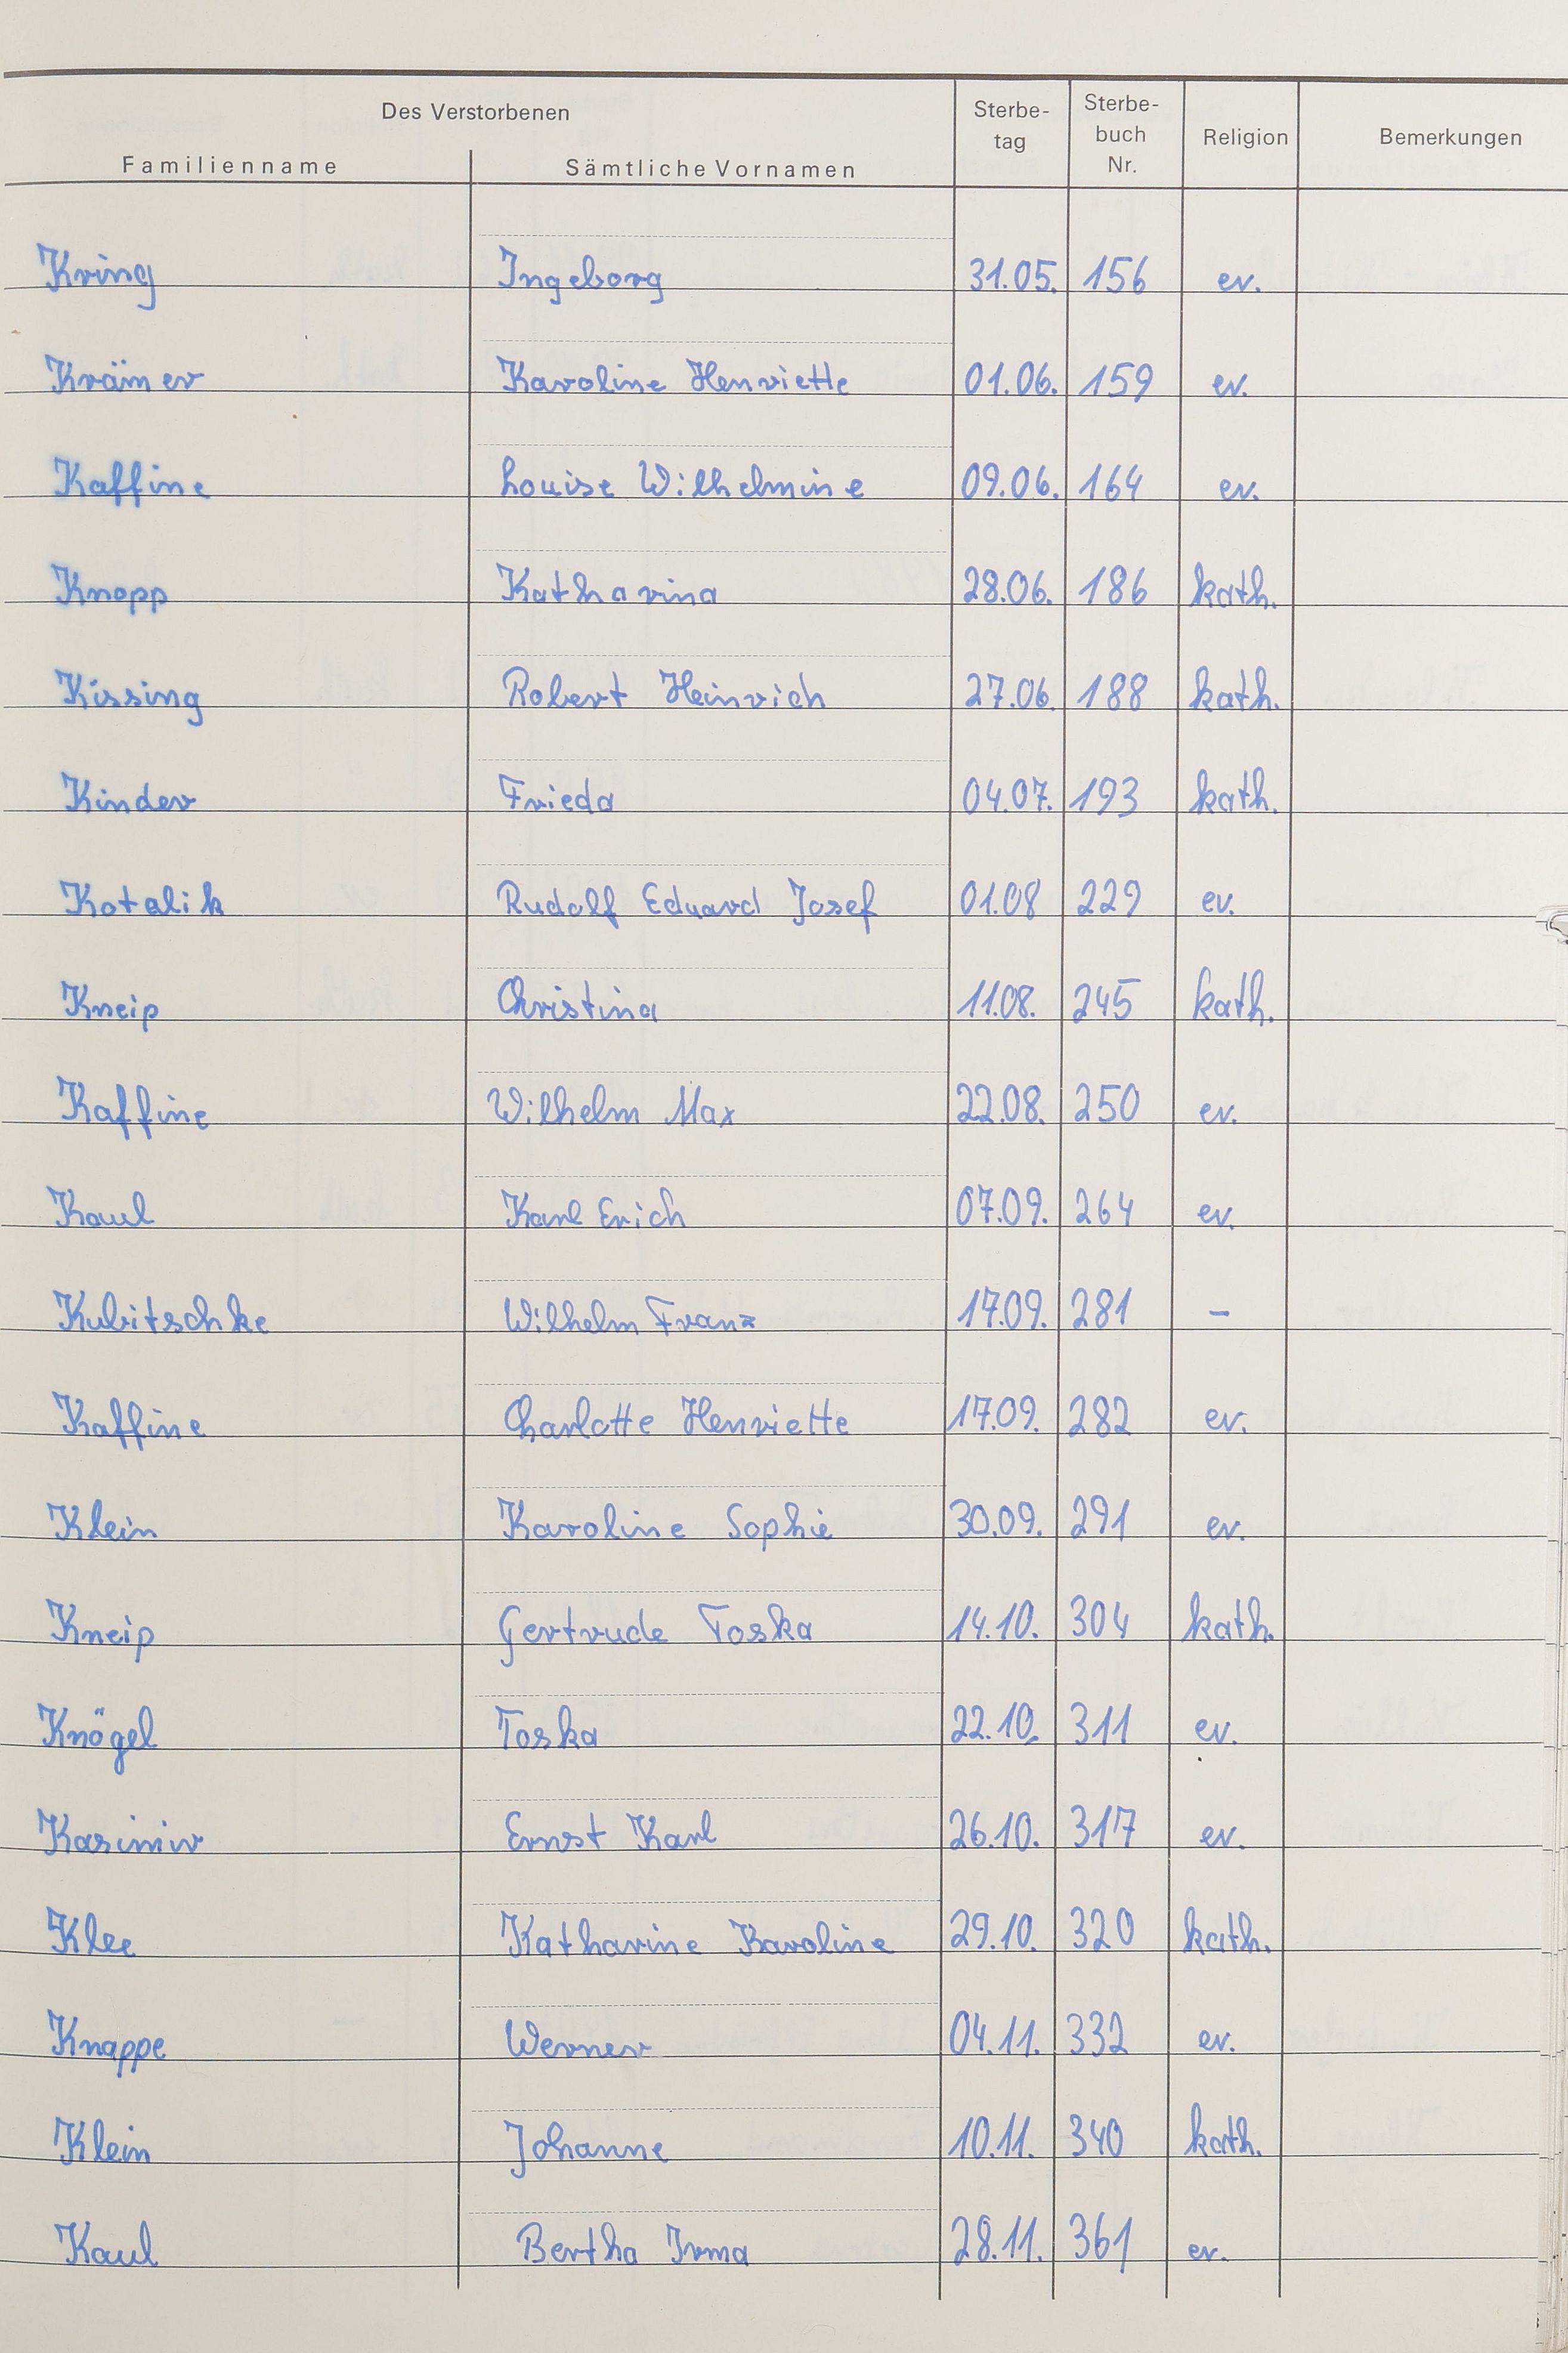 Des Verstorbenen
Familienname Sämtliche Vornamen Sterbe-tag Sterbe-buch Nr. Religion Bemerkungen
Kring Ingeborg 31.05. 156 ev.
Krämer Karoline Henriette 01.06. 159 ev.
Kaffine Louise Wilhelmine 09.06. 164 ev.
Knopp Katharina 28.06. 186 kath.
Kissing Robert Heinrich 27.06. 188 kath.
Kinder Frieda 04.07. 193 kath.
Kotalik Rudolf Eduard Josef 01.08 229 ev.
Kneip Christina 11.08. 245 kath.
Kaffine Wilhelm Max 22.08. 250 ev.
Kaul Karl Erich 07.09. 264 ev.
Kubitschke Wilhelm Franz 17.09. 281 –
Kaffine Charlotte Henriette 17.09. 282 ev.
Klein Karoline Sophie 30.09. 291 ev.
Kneip Gertrude Toska 14.10. 304 kath.
Knögel Toska 22.10. 311 ev.
Kasimir Ernst Karl 26.10. 317 ev.
Klee Katharine Karoline 29.10. 320 kath.
Knappe Werner 04.11. 332 ev.
Klein Johanne 10.11. 340 kath.
Kaul Bertha Irma 28.11. 361 ev.